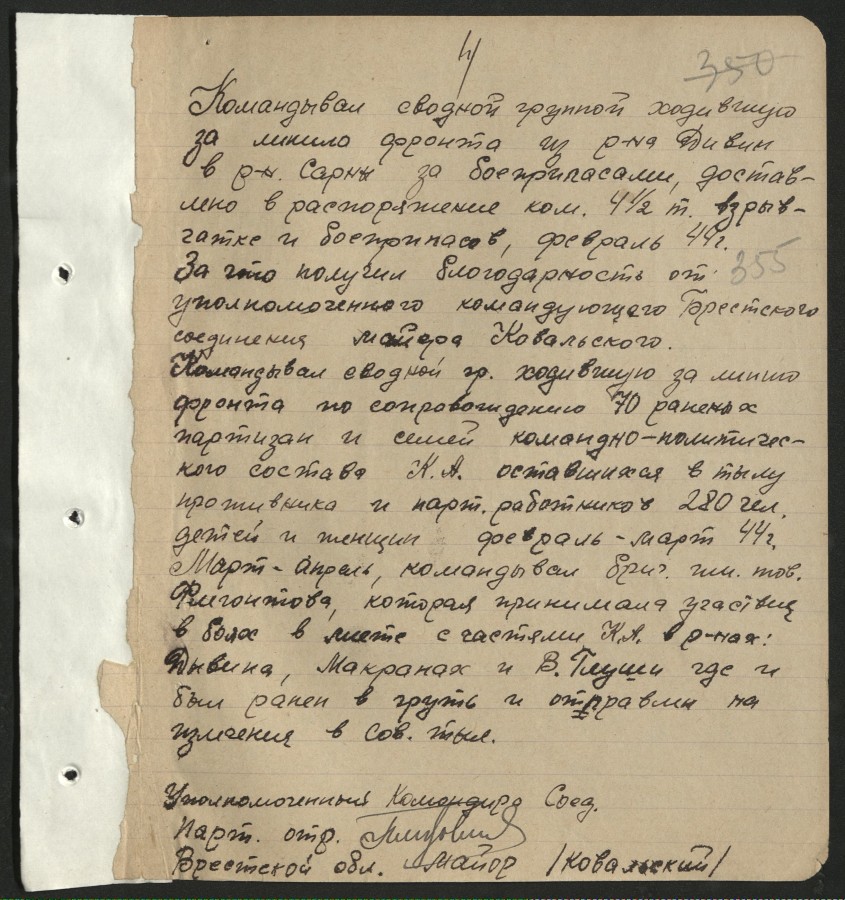 4
350
Командывал сводной группой ходившую
за линию фронта из р-на Дивин
в р-н. Сарны за боеприпасами, достав-
лено в распоряжение ком. 4½ т. взрыв-
чатке и боеприпасов, февраль 44г.
355
За что получил благодарность от
уполномоченного командующего Брестского
соединения майора Ковальского.
Командывал сводной гр. ходившую за линию
фронта по сопровождению 70 раненых
партизан и семей командно-политичес-
кого состава К.А. оставшихся в тылу
противника и парт. работников 280 чел.
детей и женщин февраль-март 44г.
Март-апрель, командывал бриг. им. тов.
Флегонтова, которая принимала участие
в боях в месте с частями К.А. в р-нах:
Дывина, Макранах и В. Глуши где и
был ранен в груть и отправлин на
излчения в сов. тыл.
Уполномоченный Командира Соед.
Парт. отр.
Брестской обл. Майор /Ковальский/